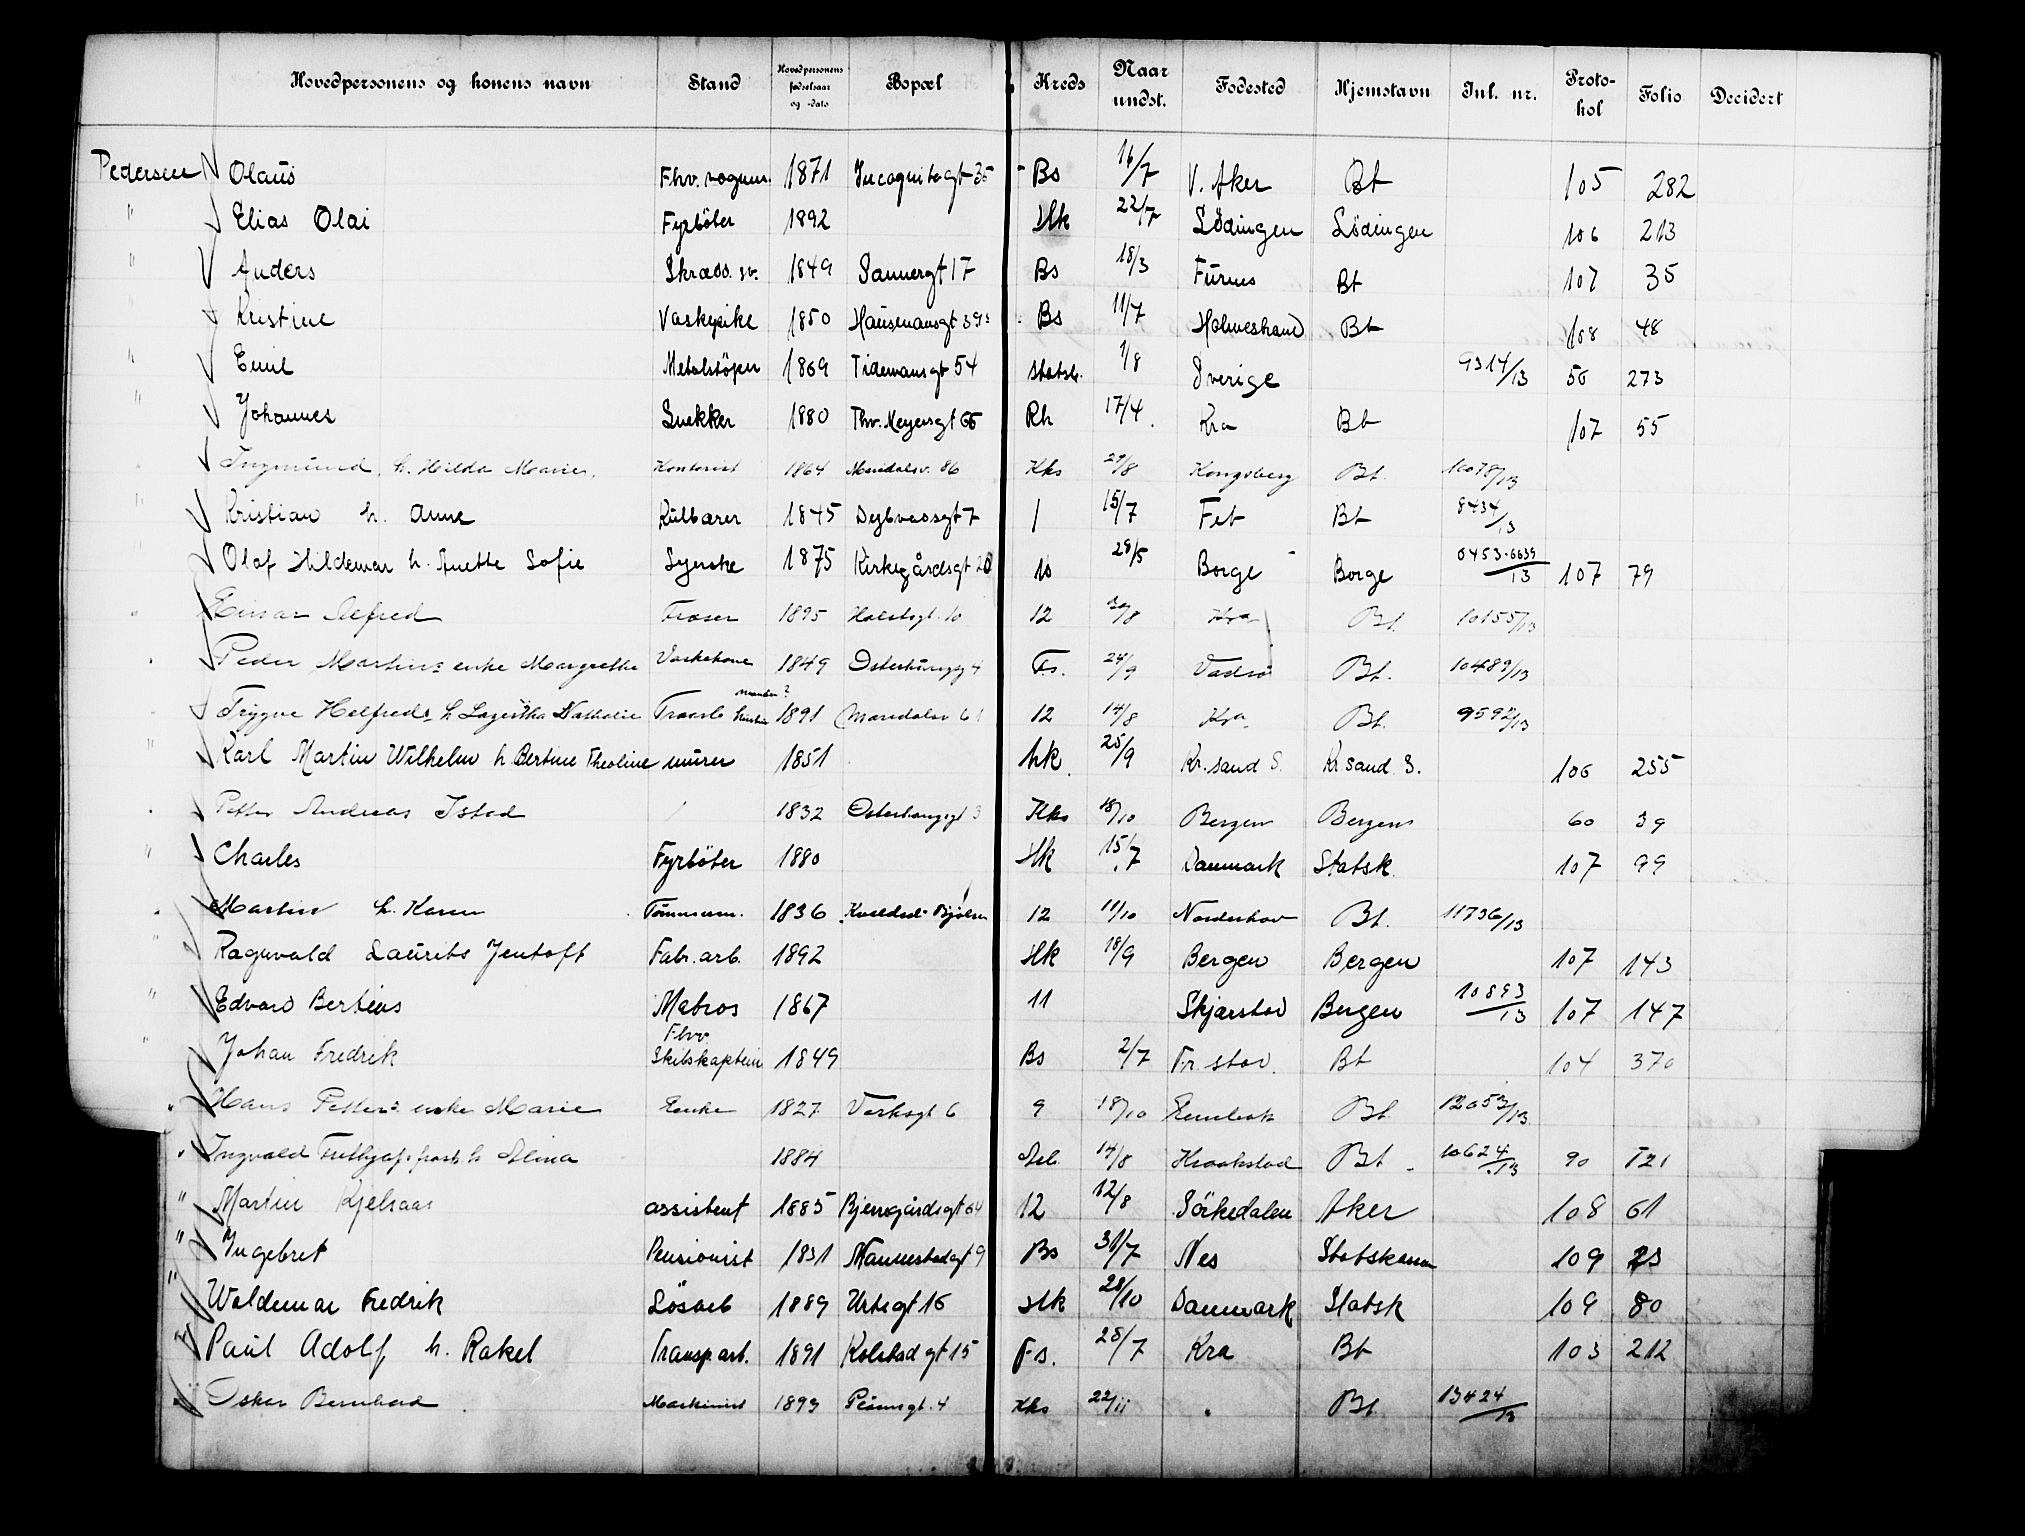 Hovedpersonens og konens navn Stand Hovedpersonens fødselsaar og -dato Bopæl Kreds Naar undst. Fødested Hjemstavn Inl. nr. Protokol Folio Decidert
Pedersen Olaus Fhv. vognm. 1871 Incognitogt 35 Bs 16/7 V. Aker Bt 105 282
" Elias Olai Fyrbøter 1892 Hk 22/7 Lødingen Lødingen 106 213
" Anders Skrædd. sv. 1849 Sannergt 17 Bs 18/3 Furnes Bt 107 35
" Kristine Vaskepike 1850 Hausmansgt Bs 11/7 Holmestrand Bt 108 48
" Emil Metalstøper 1869 Tidemansgt 54 Statsb. 1/8 Sverige 9314/13 56 273
" Johannes Snekker 1880 Thv. Meyersgt 66 Rh 17/4 Kra Bt 107 55
Ingmund h. Hilda Marie Kontorist 1864 Maridalsv. 86 Kks 29/8 Kongsberg Bt. 10078/13
" Kristian h. Anne Kulbærer 1845 Dybvadsgt 7 1 15/7 Fet Bt 8434/13
Olaf Hildemar h. Anette Sofie Syerske 1875 Kirkegårdsgt 20 10 28/5 Borge Borge 6453-6639/13 107 79
" Einar Alfred Fraser 1895 Holstsgt. 10 12 30/8 Kra Bt. 10155/13
Peder Martins enke Margrethe Vaskekone 1849 Østerhausgt 4 Fs. 24/9 Vadsø Bt. 10489/13
Trygve Helfred h Lagertha Nathalie 1891 Maridalsv 61 12 14/8 Kra Bt. 9592/13
" Karl Martin Wilhelm h. Bertine Theoline murer 1851 hk. 25/9 Kr. sand S. Kr sand S. 106 255
Petter Andreas Istad 1832 Østerhausgt 3 Kks 18/10 Bergen Bergen 60 39
" Charles Fyrbøter 1880 Hk 15/7 Danmark Statsk. 107 99
" Martin h. Karen Tømmerm. 1836 12 11/10 Norderhov Bt. 11736/13
" Ragnvald Laurits Jentoft Fabr. arb. 1892 Hk 18/9 Bergen Bergen 107 143
" Edvard Bertins Matros 1867 11 Skjerstad Bergen 10893/13 107 147
" Johan Fredrik Fhv. Skibskaptein 1849 Bs 2/7 Fr. stad. Bt 104 370
" Hans Petters enke Marie Enke 1827 Verksgt 6 9 18/10 Bt. 12053/13
" Ingvald h Alma 1884 14/8 Kraakstad Bt. 10624/13 90 121
" Martin Kjelsaas assistent 1885 Bjerregårdsgt 64 12 12/8 Sørkedalen Aker 108 61
" Ingebret Pensionist 1831 Mannestadgt 9 Bs 31/7 Nes Statskassen 109 23
" Waldemar Fredrik Løsarb 1889 Urtegt 16 Hk 28/10 Danmark Statsk 109 80
" Paul Adolf h. Rakel Transp. arb. 1891 Kolstadgt 15 Fs. 28/7 Kra Bt 103 212
" Oskar Bernhard Maskinist 1893 Kks 22/11 " Bt 13424/13